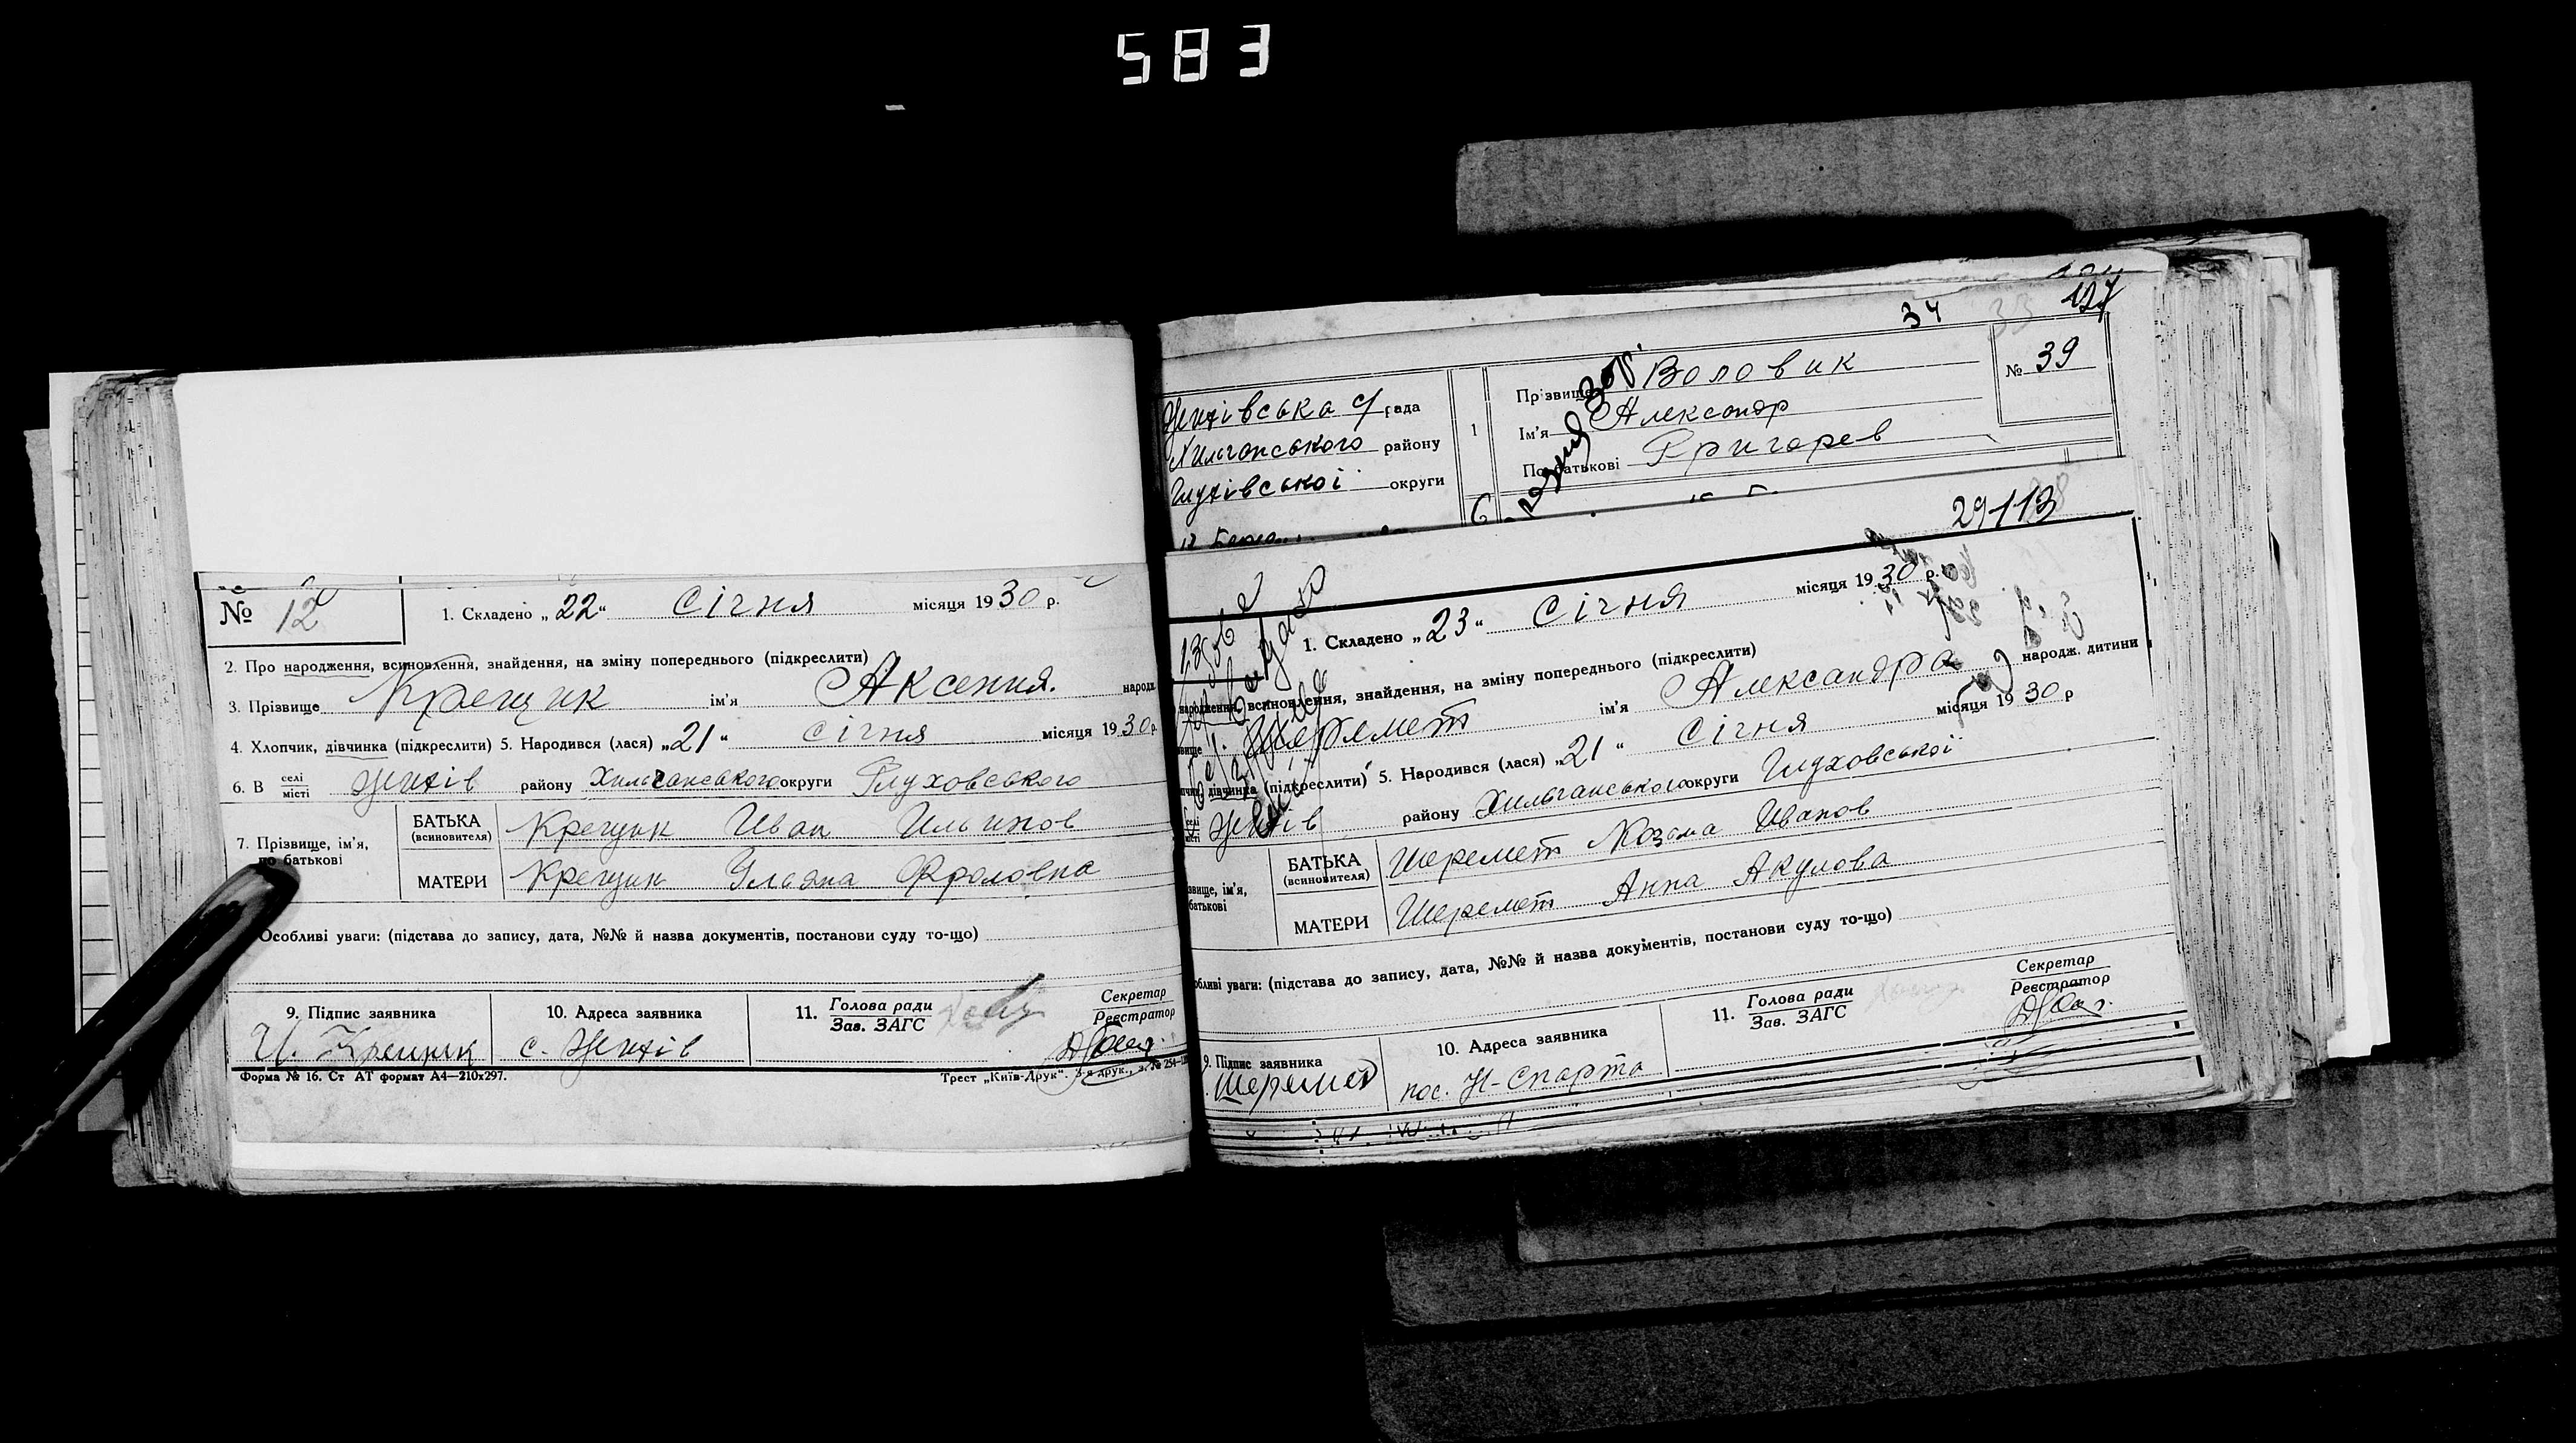 583
№ 12
1. Складено „22“ Січня місяця 1930 р.
2. Про народження, всиновлення, знайдення, на зміну попереднього (підкреслити)
3. Прізвище Крещик ім'я Аксения. народж
4. Хлопчик, дівчинка (підкреслити) 5. Народився (лася) „21“ січня місяця 1930 р.
6. В селі місті району Хильчанського округи Глуховського
7. Прізвище, ім'я, по батькові
БАТЬКА (всиновителя) Крещик Иван Ильинов
МАТЕРИ Крещик Ульяна Фроловна
Особливі уваги: (підстава до запису, дата, №№ й назва документів, постанови суду то-що)
9. Підпис заявника
И. Крещик
10. Адреса заявника
с.
11. Голова ради
Зав. ЗАГС
Секретар
Реєстратор
Форма № 16. Ст АТ формат А4—210х297.
Трест „Київ-Друк“. 3-я друк.,
34 33 127
с/рада
Хильчанського району
Глухівської округи
1
Прізвище Воловик
Ім'я Александр
По батькові Григорев
№ 39
29 113
13
1. Складено „23“ Січня місяця 1930 р.
народження, всиновлення, знайдення, на зміну попереднього (підкреслити)
звище Шеремет ім'я Александра народж. дитини
пчик, дівчинка (підкреслити) 5. Народився (лася) „21“ Січня місяця 1930 р
селі місті району Хильчанського округи Глуховської
звище, ім'я, батькові
БАТЬКА (всиновителя) Шеремет Козма Иванов
МАТЕРИ Шеремет Анна Акулова
обливі уваги: (підстава до запису, дата, №№ й назва документів, постанови суду то-що)
9. Підпис заявника
Шеремет
10. Адреса заявника
пос. Н-Спарта
11. Голова ради
Зав. ЗАГС
Секретар
Реєстратор